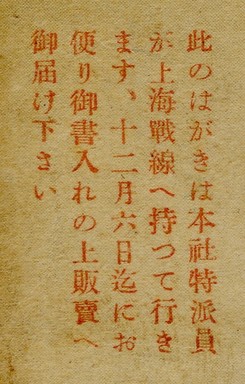 此のはがきは本社特派員
が上海戰線へ持つて行き
ます、十二月六日迄にお
便り御書入れの上販賣へ
御届け下さい